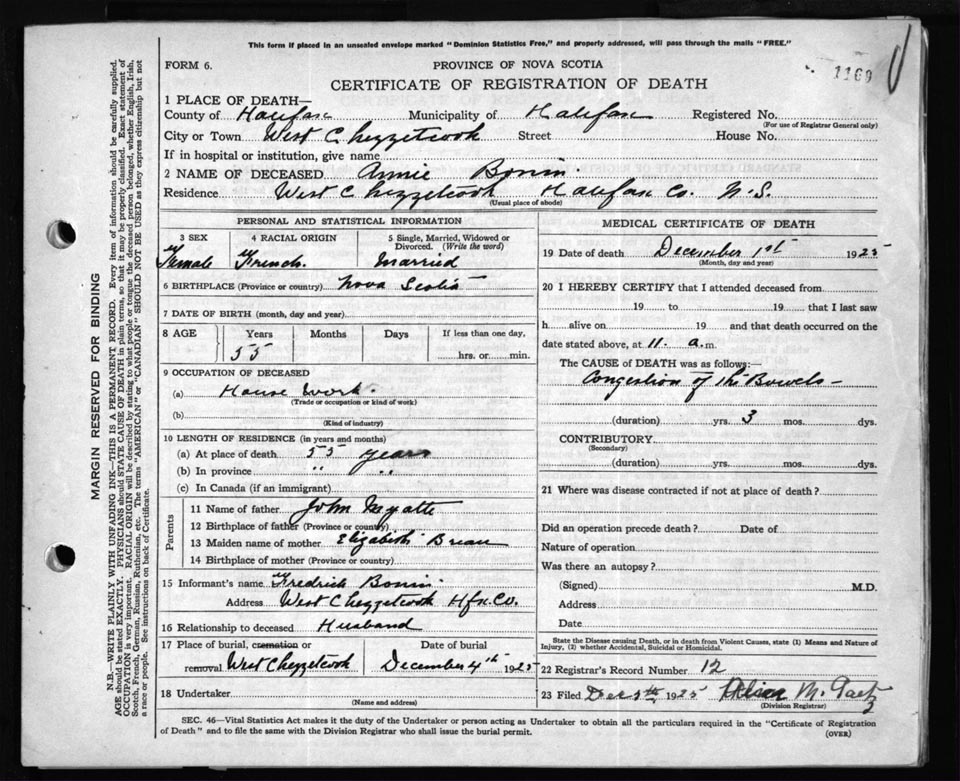 This form if placed in an unsealed envelope marked "Dominion Statistics Free," and properly addressed, will pass through the mails "FREE."
FORM 6.
PROVINCE OF NOVA SCOTIA
1169
CERTIFICATE OF REGISTRATION OF DEATH
1 PLACE OF DEATH—
County of Halifax Municipality of Halifax Registered No.
(For use of Registrar General only)
City or Town West Chezzetcook Street House No.
If in hospital or institution, give name
2 NAME OF DECEASED Annie Bonin
Residence West Chezzetcook Halifax Co. N.S.
(Usual place of abode)
PERSONAL AND STATISTICAL INFORMATION
3 SEX 4 RACIAL ORIGIN 5 Single, Married, Widowed or Divorced. (Write the word)
Female French. Married
6 BIRTHPLACE (Province or country) Nova Scotia
7 DATE OF BIRTH (month, day and year)
8 AGE Years Months Days If less than one day,
55 hrs. or min.
9 OCCUPATION OF DECEASED
(a) House work.
(Trade or occupation or kind of work)
(b)
(Kind of industry)
10 LENGTH OF RESIDENCE (in years and months)
(a) At place of death 55 years
(b) In province " "
(c) In Canada (if an immigrant)
Parents
11 Name of father John Myatte
12 Birthplace of father (Province or country)
13 Maiden name of mother Elizabeth
14 Birthplace of mother (Province or country)
15 Informant's name Fredrick Bonin
Address West Chezzetcook Hfx. Co.
16 Relationship to deceased Husband
17 Place of burial, cremation or removal West Chezzetcook
Date of burial December 4th 1925
18 Undertaker
(Name and address)
MEDICAL CERTIFICATE OF DEATH
19 Date of death December 1st 1925
(Month, day and year)
20 I HEREBY CERTIFY that I attended deceased from
19 to 19 that I last saw
h alive on 19 and that death occurred on the
date stated above, at 11. a.m.
The CAUSE OF DEATH was as follows:—
Congestion of the Bowels —
(duration) yrs. 3 mos. dys.
CONTRIBUTORY
(Secondary)
(duration) yrs. mos. dys.
21 Where was disease contracted if not at place of death?
Did an operation precede death? Date of
Nature of operation
Was there an autopsy?
(Signed) M.D.
Address
Date
State the Disease causing Death, or in death from Violent Causes, state (1) Means and Nature of Injury, (2) whether Accidental, Suicidal or Homicidal.
22 Registrar's Record Number 12
23 Filed 1925 M. Gaetz
(Division Registrar)
SEC. 46—Vital Statistics Act makes it the duty of the Undertaker or person acting as Undertaker to obtain all the particulars required in the "Certificate of Registration
of Death" and to file the same with the Division Registrar who shall issue the burial permit.
(OVER)
MARGIN RESERVED FOR BINDING
N.B.—WRITE PLAINLY WITH UNFADING INK—THIS IS A PERMANENT RECORD. Every item of information should be carefully supplied.
AGE should be stated EXACTLY. PHYSICIANS should STATE CAUSE OF DEATH in plain terms, so that it may be properly classified. Exact statement of
OCCUPATION is very important. RACIAL ORIGIN will be described by stating to what people or tongue the deceased person belonged, whether English, Irish,
Scotch, French, German, Russian, Ruthenian, etc. The terms "AMERICAN" or "CANADIAN" SHOULD NOT BE USED as they express citizenship but not
a race or people. See instructions on back of Certificate.